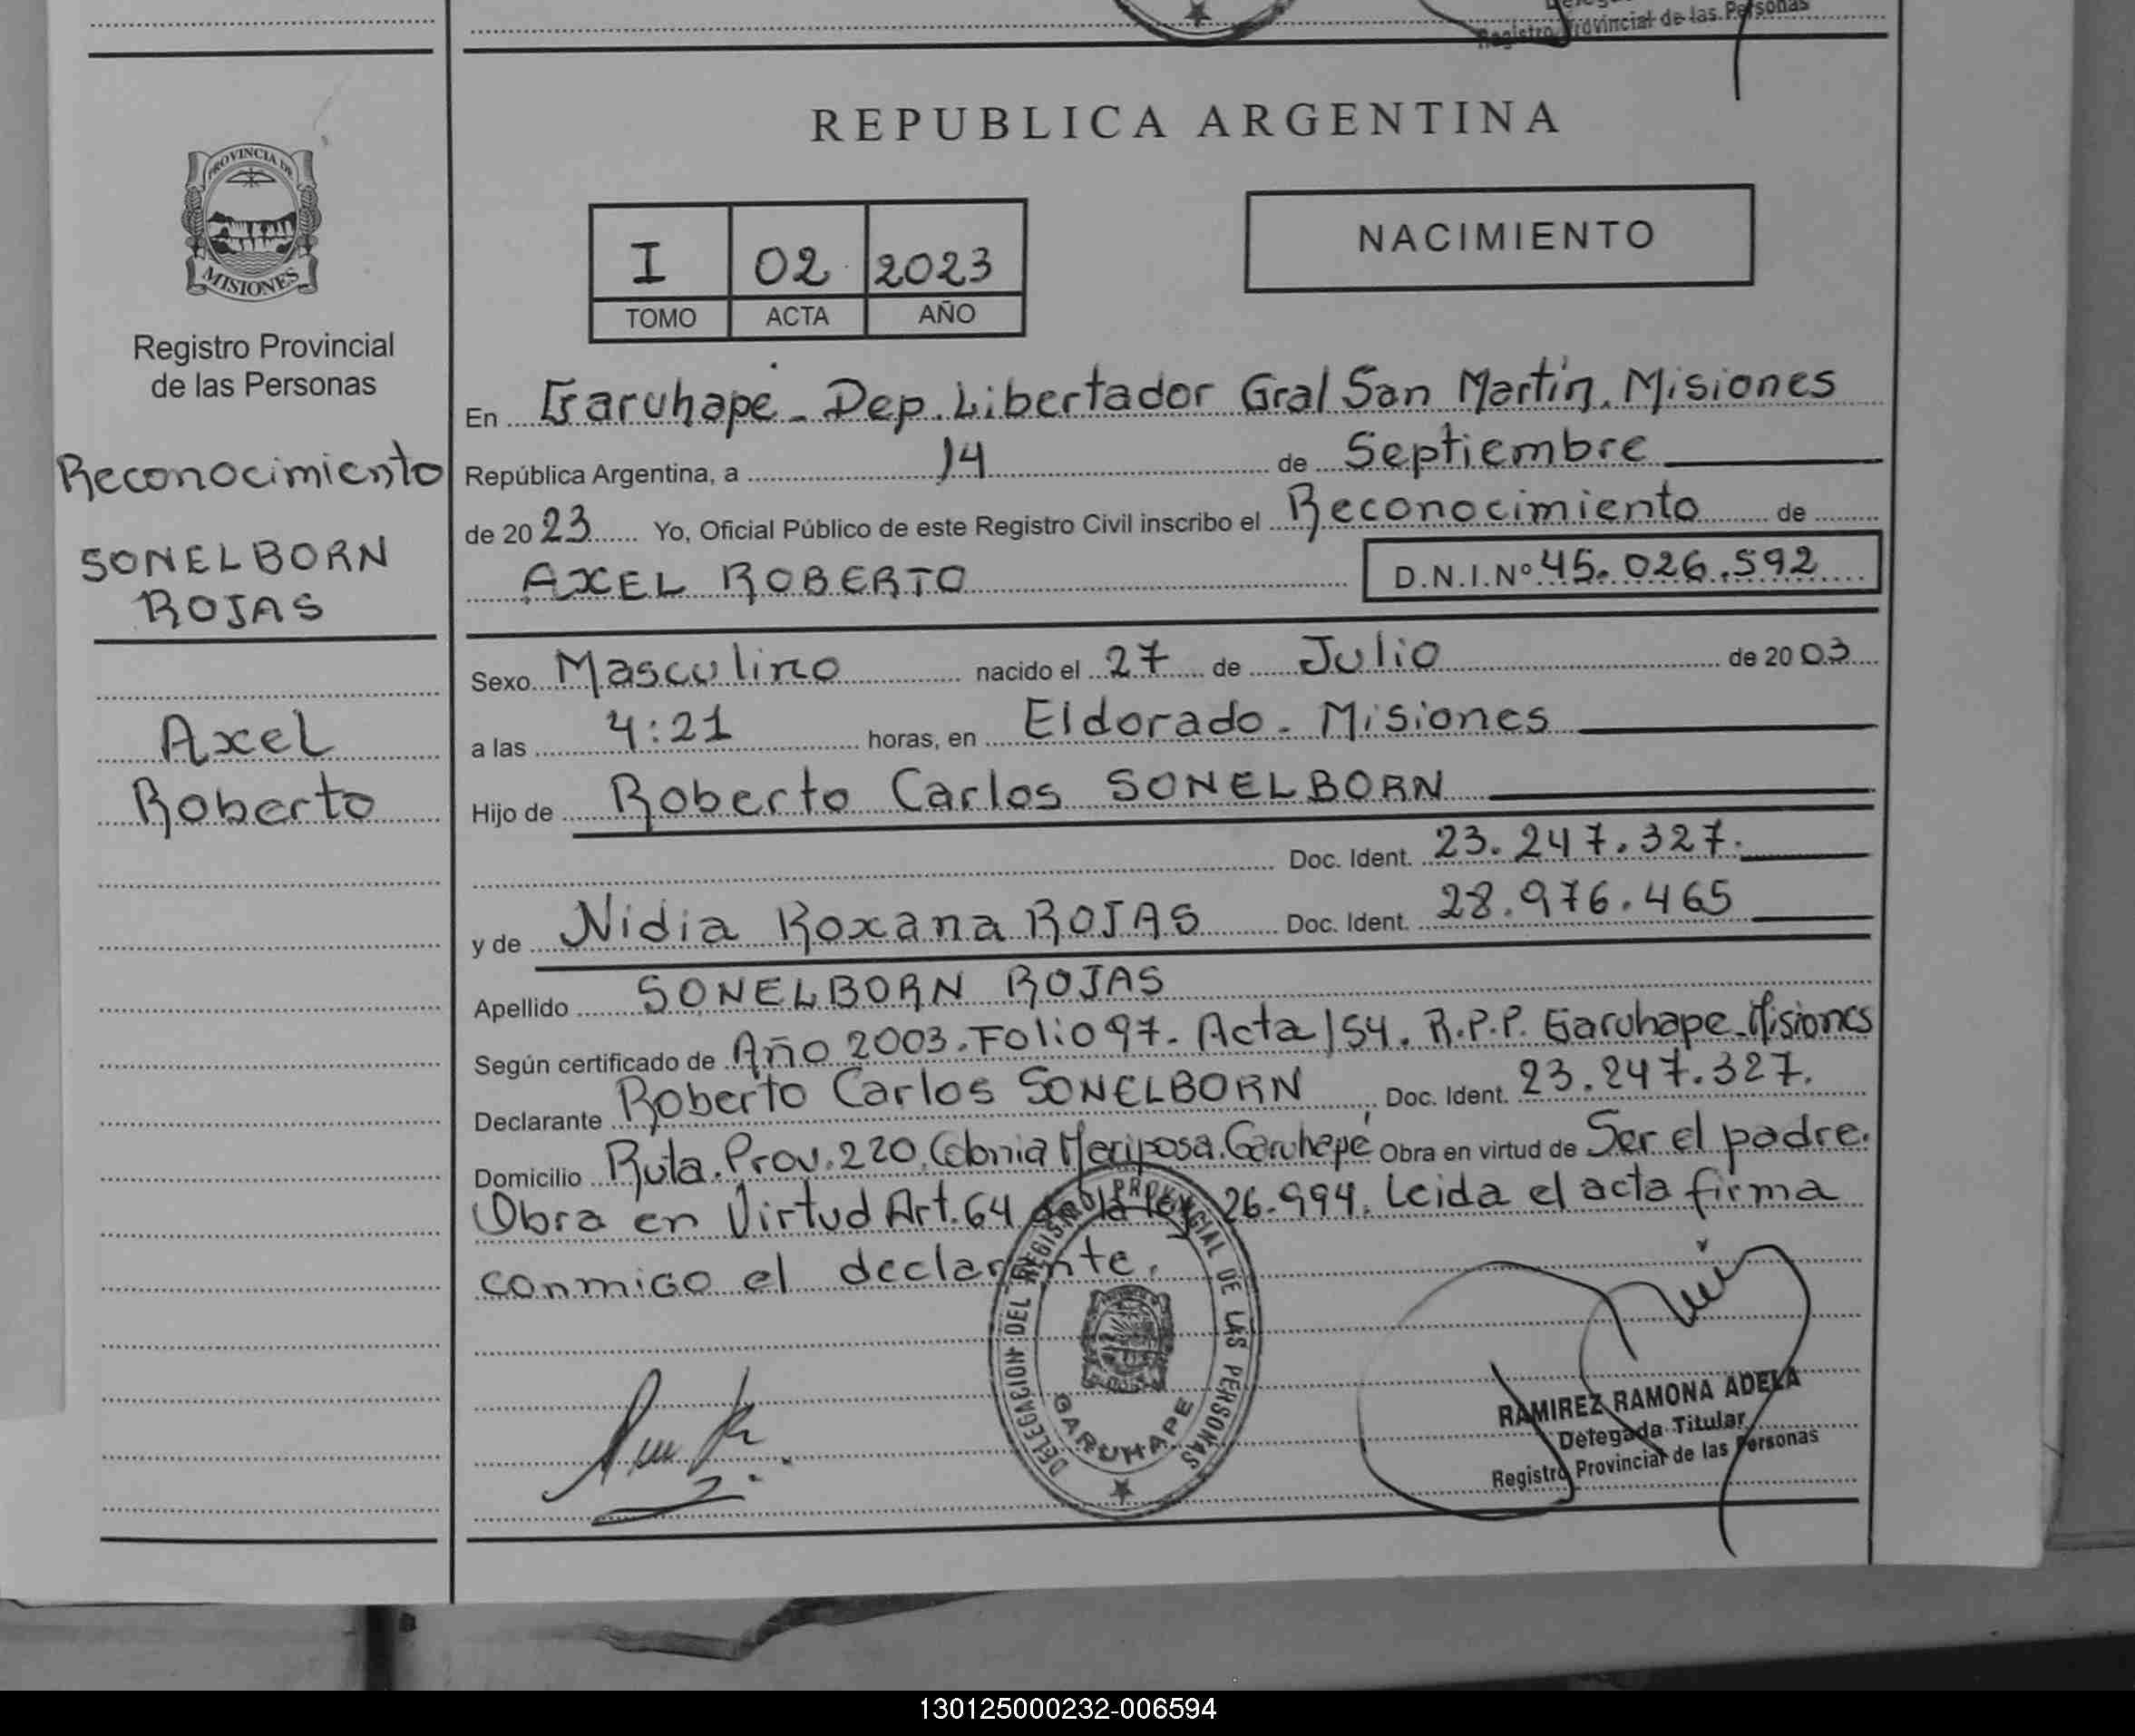 Registro Provincial de las Personas
REPUBLICA ARGENTINA
PROVINCIA DE
MISIONES
Registro Provincial
de las Personas
Reconocimiento
SONELBORN
ROJAS
Axel
Roberto
I 02 2023
TOMO ACTA AÑO
NACIMIENTO
En Garuhapé - Dep. Libertador Gral San Martín. Misiones
República Argentina, a 14 de Septiembre
de 2023 Yo, Oficial Público de este Registro Civil inscribo el Reconocimiento de
AXEL ROBERTO D.N.I.Nº 45.026.592
Sexo Masculino nacido el 27 de Julio de 2003
a las 4:21 horas, en Eldorado - Misiones
Hijo de Roberto Carlos SONELBORN
Doc. Ident. 23.247.327.
y de Nidia Roxana ROJAS Doc. Ident. 28.976.465
Apellido SONELBORN ROJAS
Según certificado de Año 2003. Folio 97. Acta 154. R.P.P. Garuhape-Misiones
Declarante Roberto Carlos SONELBORN Doc. Ident. 23.247.327.
Domicilio Ruta. Prov. 220. Colonia Mariposa. Garuhapé Obra en virtud de Ser el padre.
Obra en Virtud Art. 64 de la ley 26.994. Leida el acta firma
conmigo el declarante.
DELEGACION DEL REGISTRO PROVINCIAL DE LAS PERSONAS
GARUHAPE
RAMIREZ RAMONA ADELA
Delegada Titular
Registro Provincial de las Personas
130125000232-006594